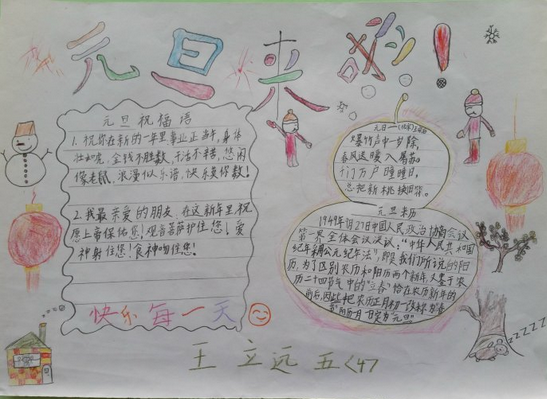 元旦来啦!
元旦祝福语
1.祝你在新的一年里事业正当午,身体
壮如虎,金钱不胜数,干活不辛苦,悠闲
像老鼠,浪漫似乐谱,快乐莫你数!
2.我最亲爱的朋友,在这新年里,祝
愿上帝保佑您!观音菩萨护住您!爱
神射住您!食神吻住您!
快乐每一天
元日
爆竹声中一岁除,
春风送暖入屠苏。
千门万户曈曈日,
总把新桃换旧符。
元旦来历
1949年9月27日中国人民政治协商会议
第一界全体会议决议,“中华人民共和国
纪年采用公元纪年法”,即是我们所说的阳
历,为了区别农历和阳历两个新年,又鉴于农
历二十四节气中的“立春”恰在农历新年的
前后,因此把农历正月初一改称为“春
节”阳历一月一日定为“元旦”
ZZZZZ
王立远 五<4>